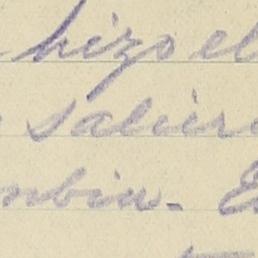 hizo el
saliera
mbia. E